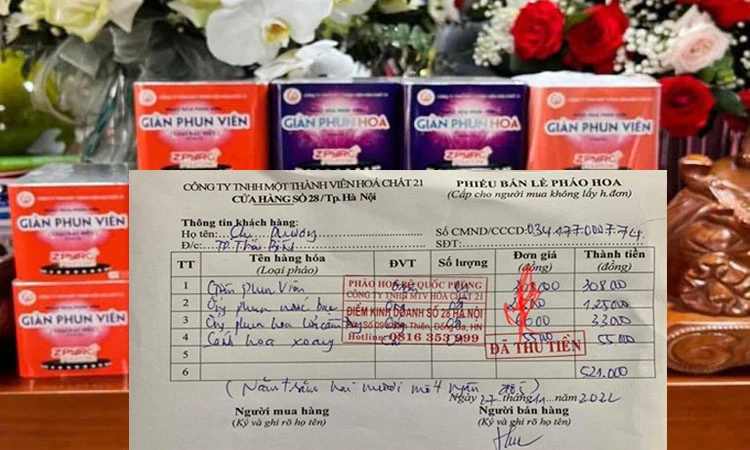 CÔNG TY TNHH MỘT THÀNH VIÊN HÓA CHẤT 21
PHÁO HOA PHUN VIÊN
GIÀN PHUN VIÊN
Z PYRO
GIÀN PHUN HOA
Z PYRO
GIÀN PHUN HOA
Z PYRO
GIÀN PHUN VIÊN
Z PYRO
GIÀN PHUN VIÊN
Z PYRO
GIÀN PHUN VIÊN
Z PYRO
CÔNG TY TNHH MỘT THÀNH VIÊN HOÁ CHẤT 21
CỬA HÀNG SỐ 28/Tp. Hà Nội
PHIẾU BÁN LẺ PHÁO HOA
(Cấp cho người mua không lấy h.đơn)
Thông tin khách hàng:
Họ tên: Chị
Số CMND/CCCD: 034177000774
Đ/c: TP Thái Bình
SĐT:
TT Tên hàng hóa (Loại pháo) ĐVT Số lượng Đơn giá (đồng) Thành tiền (đồng)
1 Giàn Phun Viên 308.000
2 Ống phun nước bạc 125.000
3 Ống phun hoa lửa cầm tay 33.000
4 Cánh hoa xoay 55.000 55.000
5
6 521.000
PHÁO HOA BỘ QUỐC PHÒNG
CÔNG TY TNHH MTV HÓA CHẤT 21
ĐIỂM KINH DOANH SỐ 28 HÀ NỘI
Hotline: 0816 353 999
ĐÃ THU TIỀN
(Năm trăm hai mươi mốt ngàn đồng)
Ngày 27 tháng 11 năm 2022
Người mua hàng
(Ký và ghi rõ họ tên)
Người bán hàng
(Ký và ghi rõ họ tên)